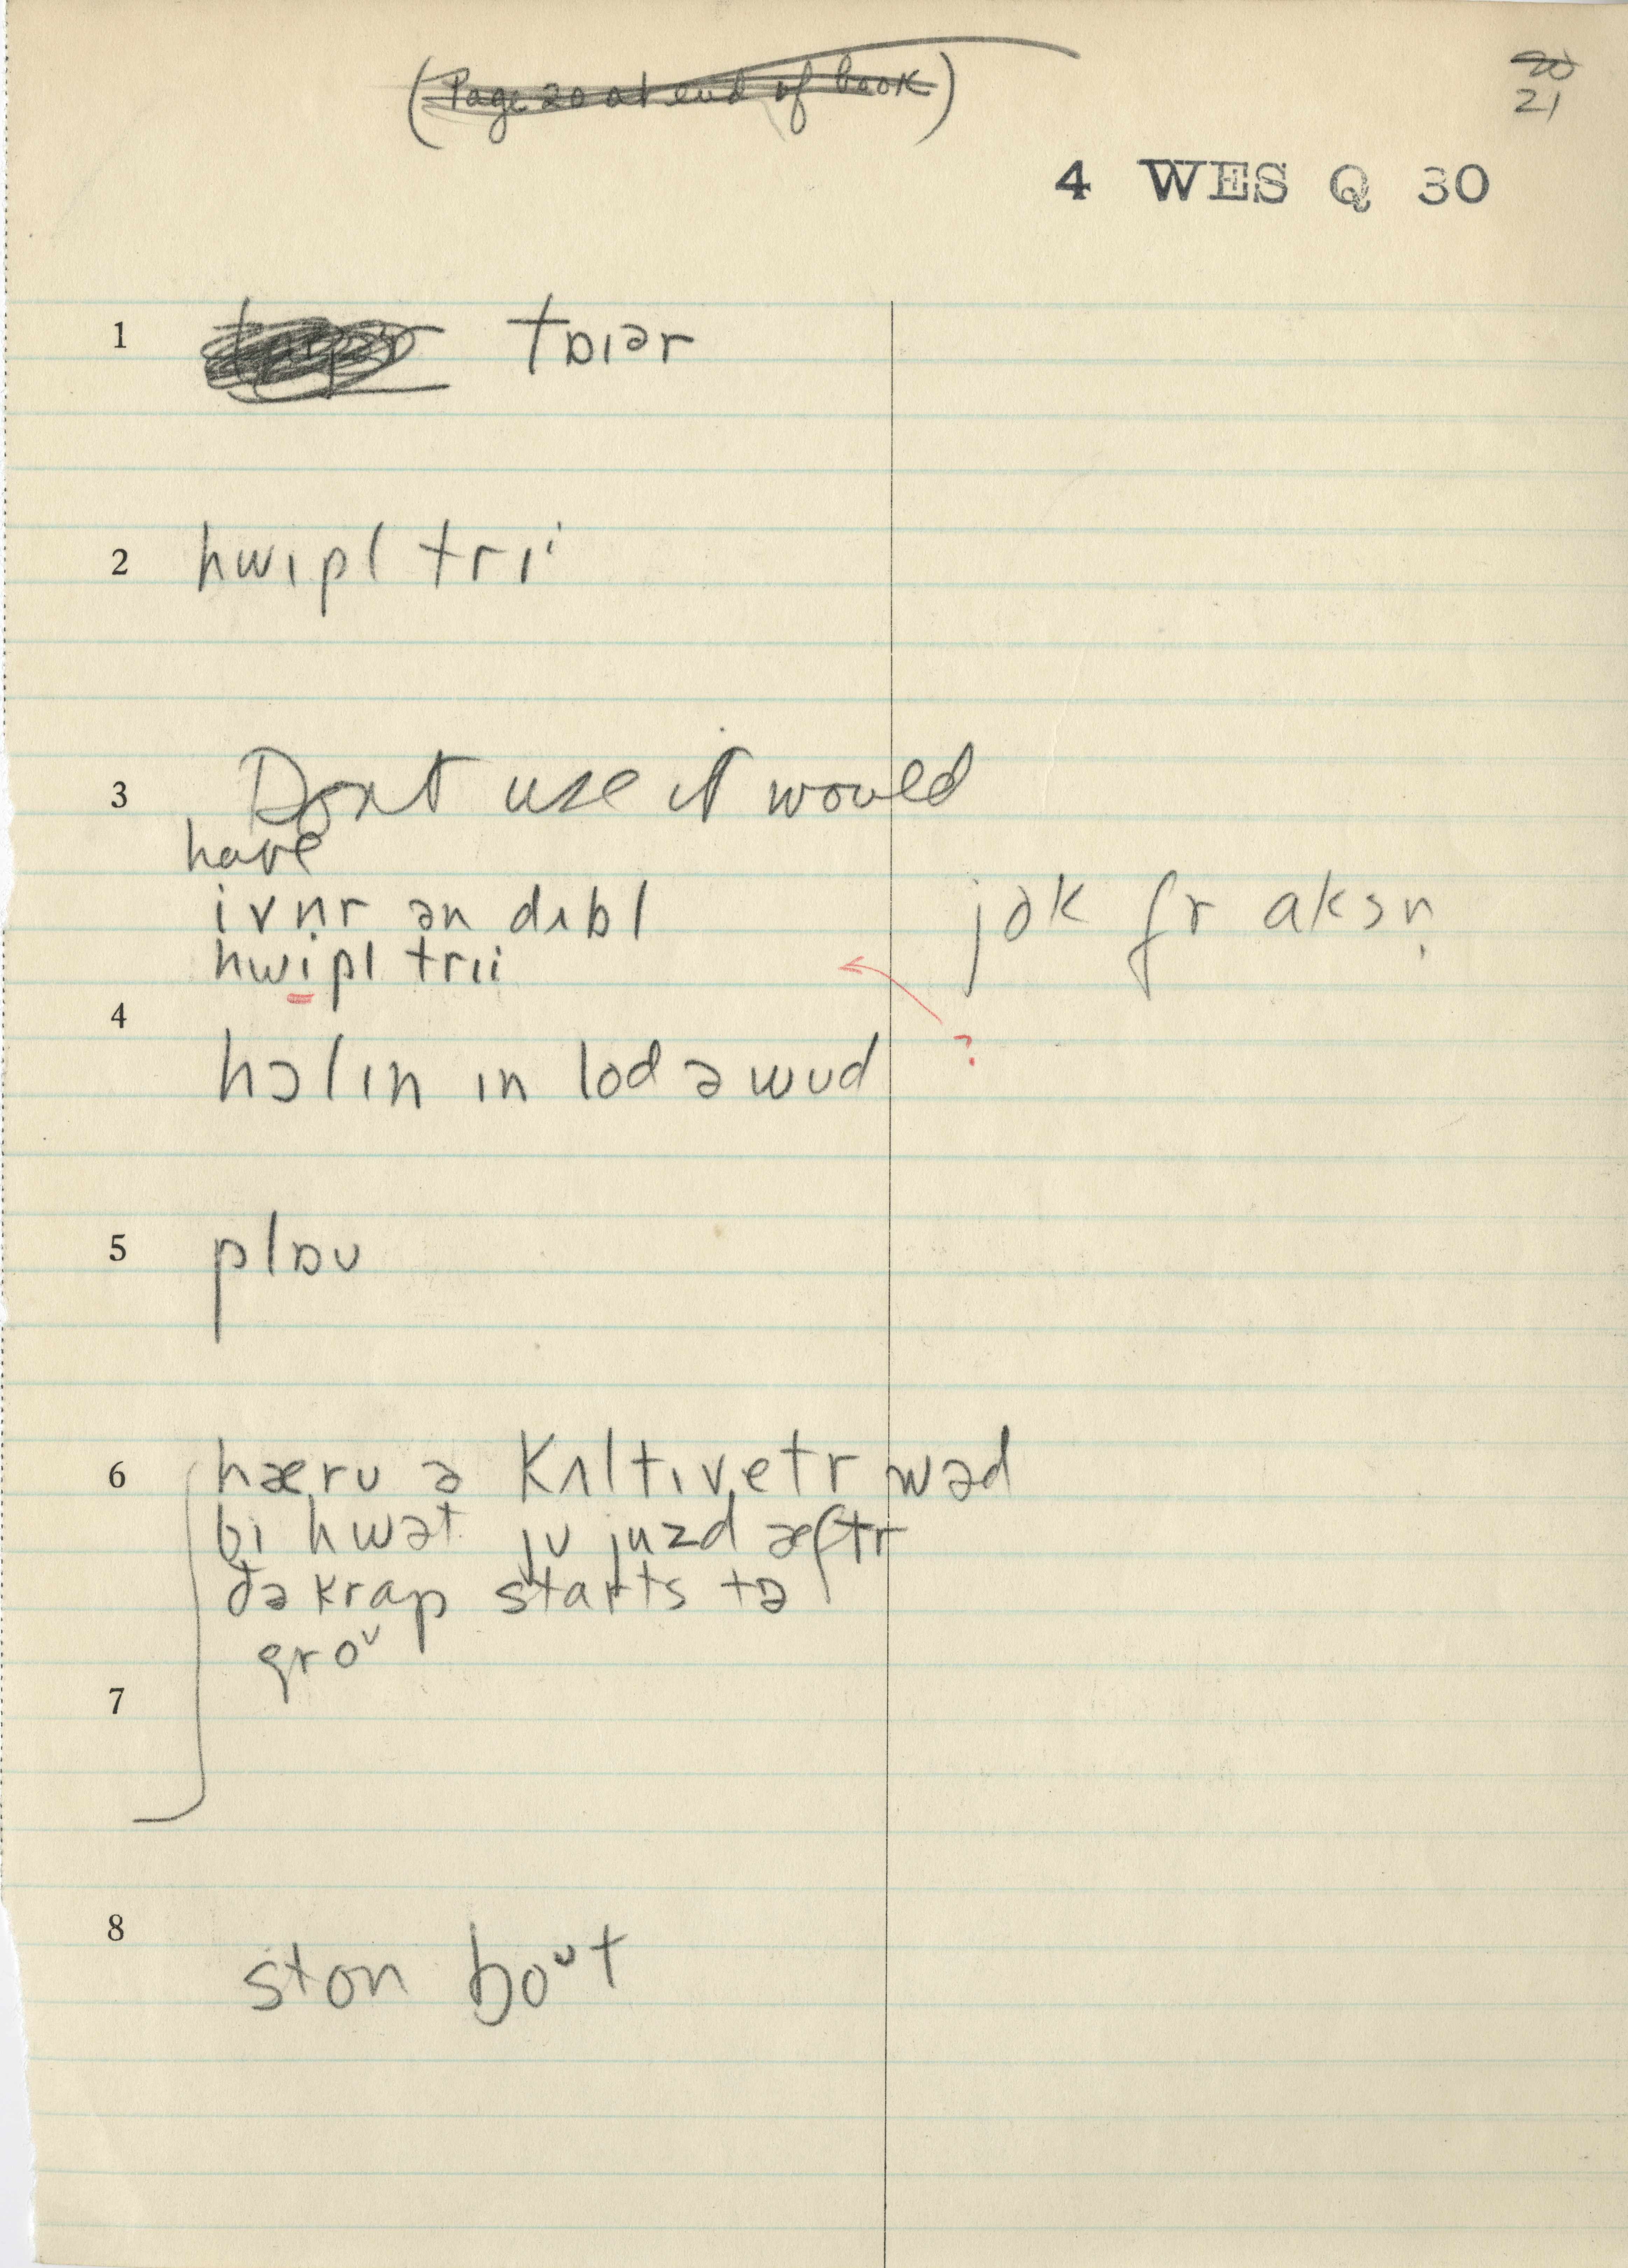 (Page 20 at end of book)
20
21
4 WES Q 30
1 tɒɪər
2 hwɪpl trɪi
3 Dont use it would
have
ivn̩r ən dʌbl
hwipl trɪi
jok fr aksn̩
?
4 hɔlɪn ɪn lod ə wud
5 plɒʊ
6 hæru ə kʌltɪvetr wəd
bɪ hwət ju juzd æftr
ðə krap starts tə
groᵛ
7
8 ston boᵘt